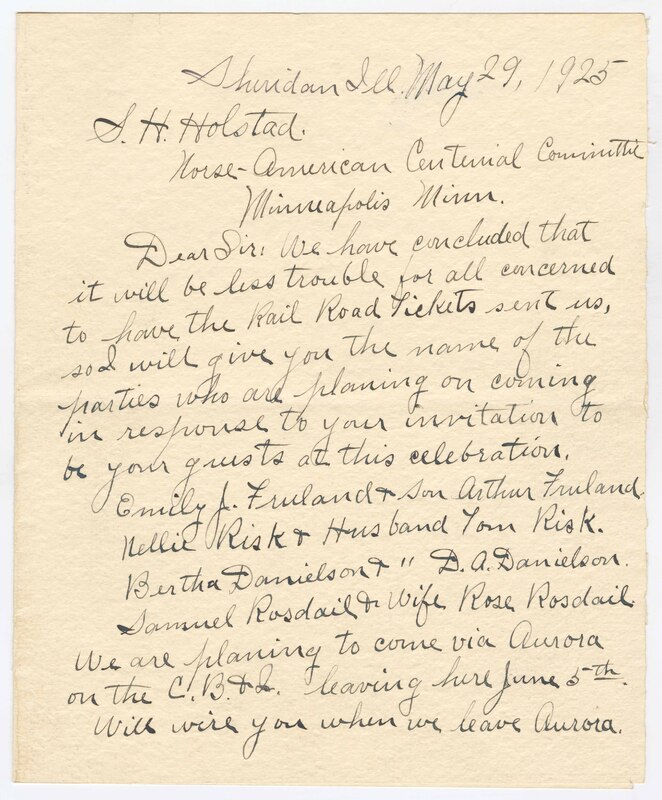 Sheridan Ill. May 29, 1925
S. H. Holstad.
Norse-American Centenial Committie
Minneapolis Minn.
Dear Sir: We have concluded that
it will be less trouble for all concerned
to have the Rail Road Tickets sent us,
so I will give you the name of the
parties who are planing on coming
in response to your invitation to
be your guests at this celebration.
Emily J. Fruland & son Arthur Fruland.
Nellie Risk & Husband Tom Risk.
Bertha Danielson & " D. A. Danielson.
Samuel Rosdail & Wife Rose Rosdail
We are planing to come via Aurora
on the C. B. & Q. leaving here June 5th.
Will wire you when we leave Aurora.